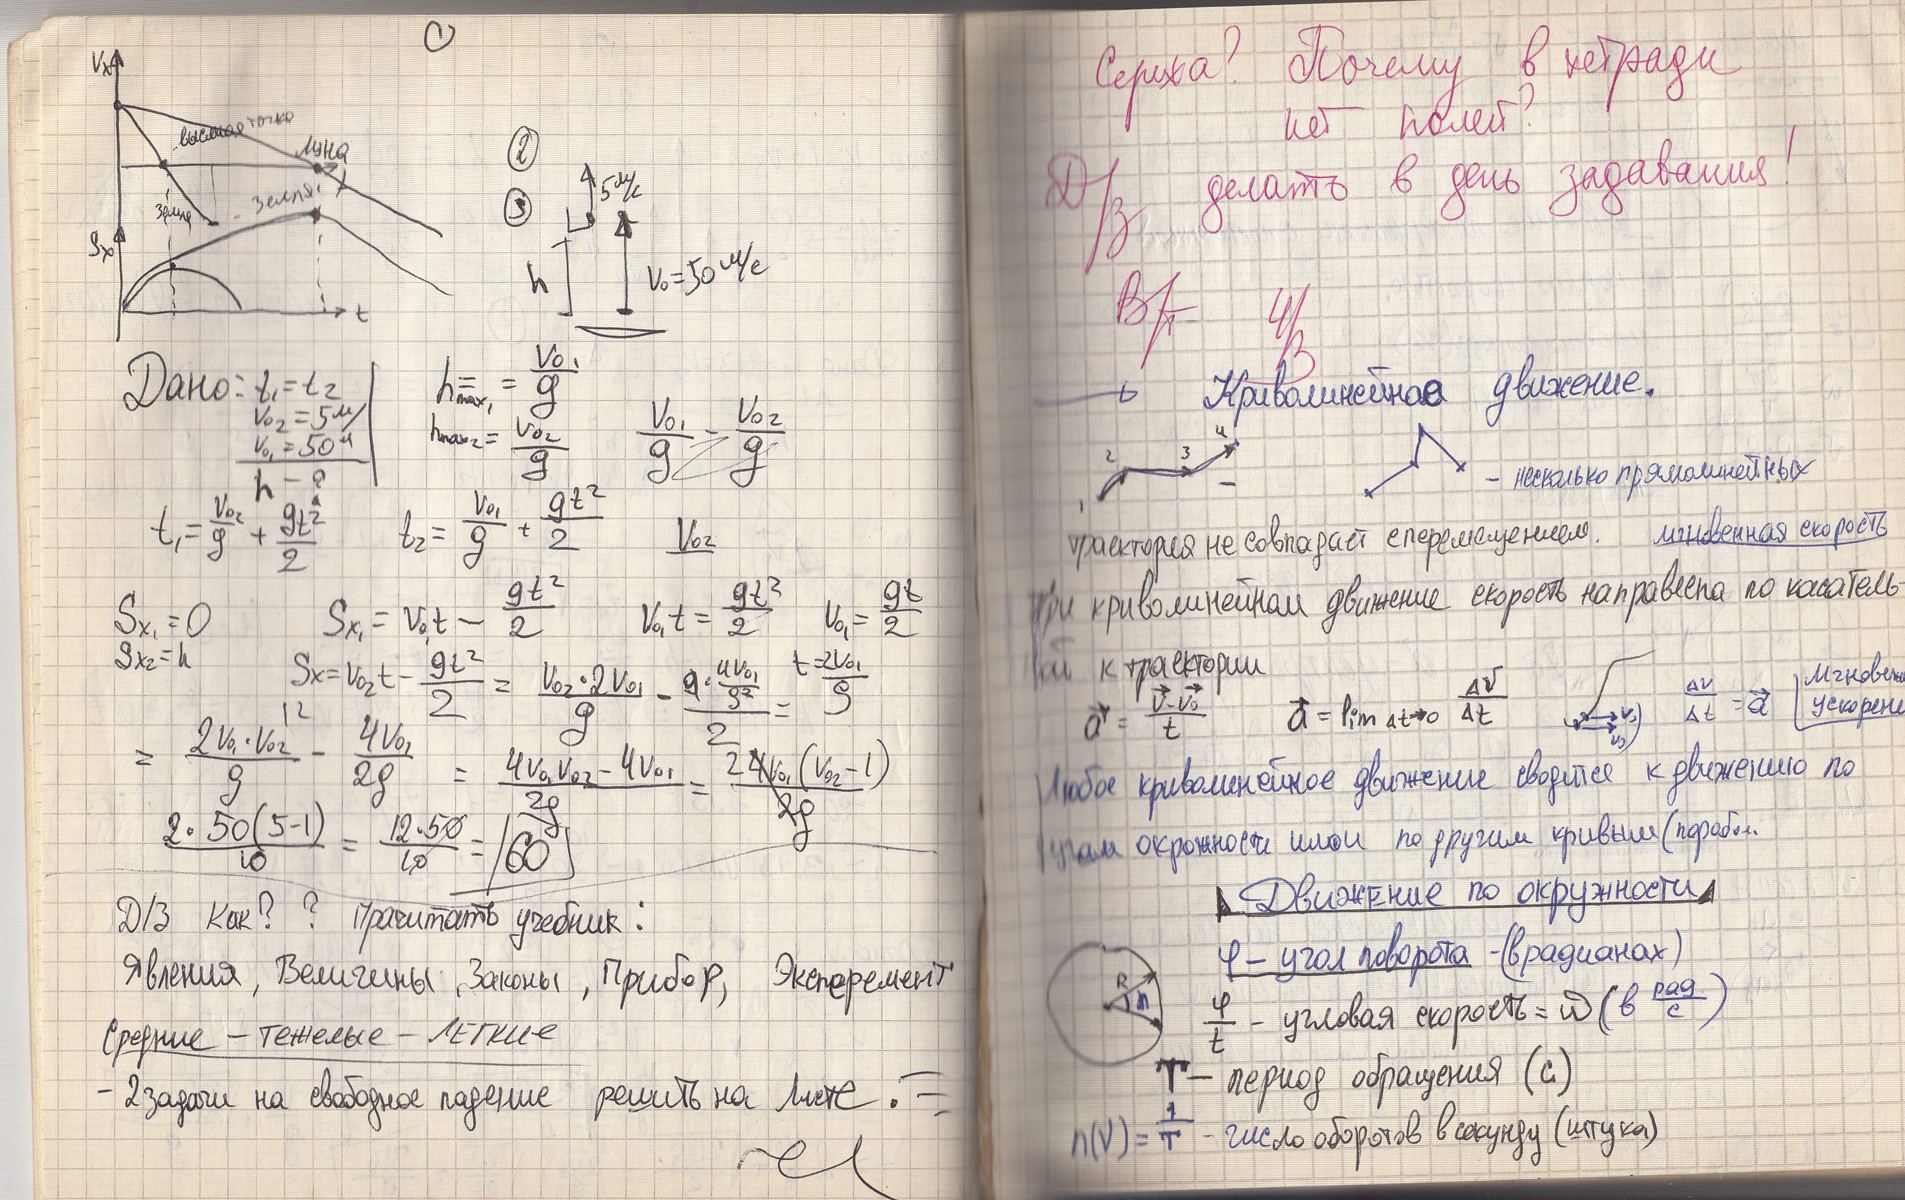 1
Vx
высшая точка
Луна
Земля
Земля
Sx
t
2
3
5 м/с
h
V₀ = 50 м/с
Дано: t₁ = t₂
V₀₂ = 5 м/
V₀₁ = 50 м
h – ?
hmax₁ = V₀₁/g
hmax₂ = V₀₂/g
V₀₁/g – V₀₂/g
t₁ = V₀₂/g + gt²/2   t₂ = V₀₁/g + gt²/2   V₀₂
Sx₁ = 0   Sx₁ = V₀₁t – gt²/2   V₀₁t = gt²/2   V₀₁ = gt/2
Sx₂ = h   Sx = V₀₂t – gt²/2 = V₀₂·2V₀₁/g – g·4V₀₁/g²/2 =   t = 2V₀₁/g
= 2V₀₁·V₀₂/g – 4V₀₁/2g = 4V₀₁V₀₂ – 4V₀₁/2g = 24V₀₁(V₀₂ – 1)/2g
2·50(5–1)/10 = 12·50/10 = 60
Д/З Как? ? Прачитать учебник:
Явления, Величины, Законы, Прибор, Эксперемент
Средние – тяжелые – Легкие
– 2 задачи на свободное падение решить на листе.
Серёжа? Почему в тетради
нет полей?
Д/з делать в день задавания!
В/т   4/3
Криволинейное движение.
1 2 3 4
– несколько прямолинейных
траектория не совпадает с перемещением. мгновенная скорость
При криволинейном движение скорость направлена по касатель-
ной к траектории
a⃗ = V⃗–V⃗₀/t   a⃗ = lim Δt→0 ΔV⃗/Δt   ΔV/Δt = a⃗   Мгновенн
ускорение
Любое криволинейное движение сводится к движению по
дугам окрожности илои по другим кривым (парабол.
Движение по окружности
φ – угол поворота – (в радианах)
R
φ/t – угловая скорость = ω (в рад/с)
T – период обращения (с)
n(V) = 1/T – число оборотов в секунду (штука)